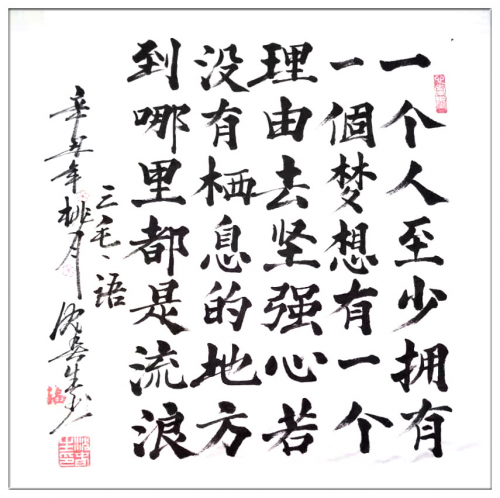 一个人至少拥有
一個梦想有一个
理由去坚强心若
没有栖息的地方
到哪里都是流浪
三毛、语
辛丑年桃月